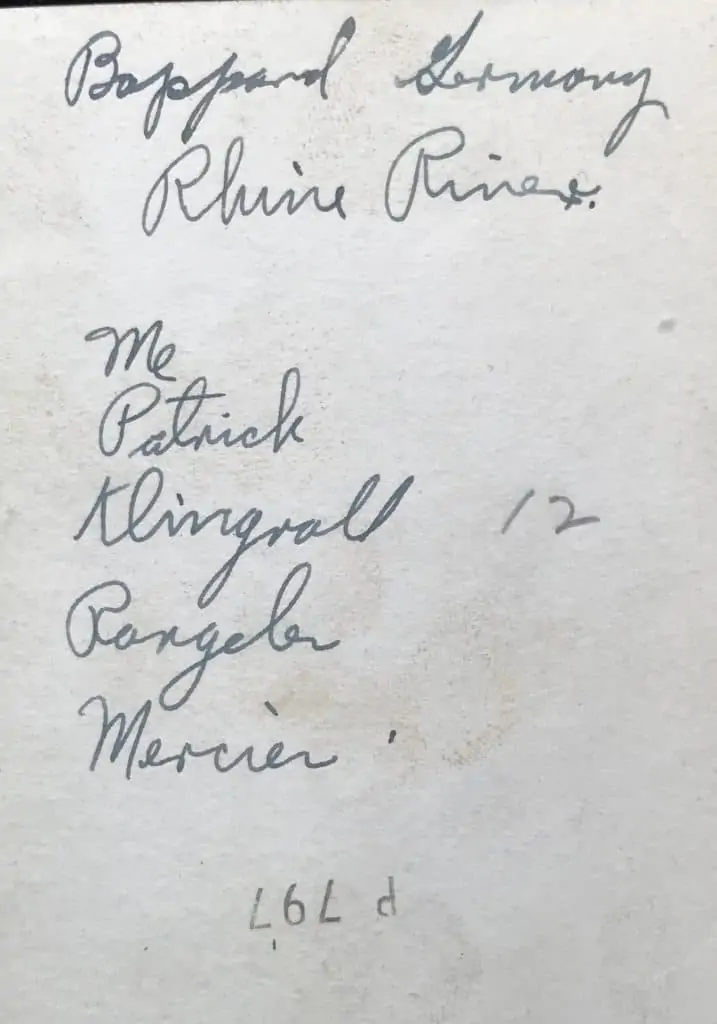 Boppard Germany
Rhine River.
Me
Patrick
Klingroll
12
Mercier
P 797